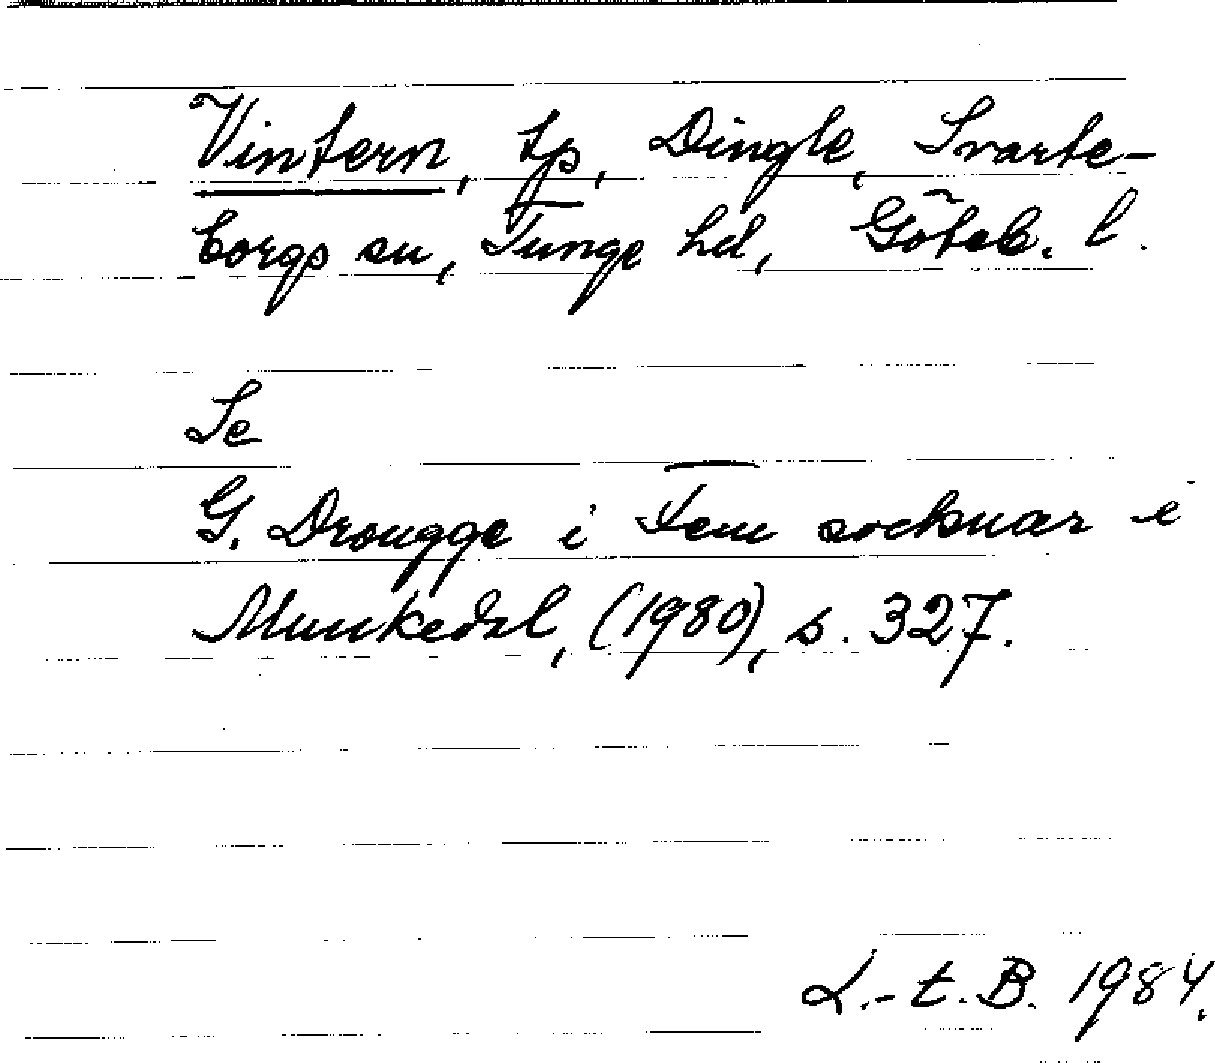 Vintern, tp, Dingle, Svarte-
borgs sn, Tunge hd, Göteb. l.
Se
G. Drougge i Fem socknar i
Munkedal, (1980), s. 327.
L.-t. B. 1984.